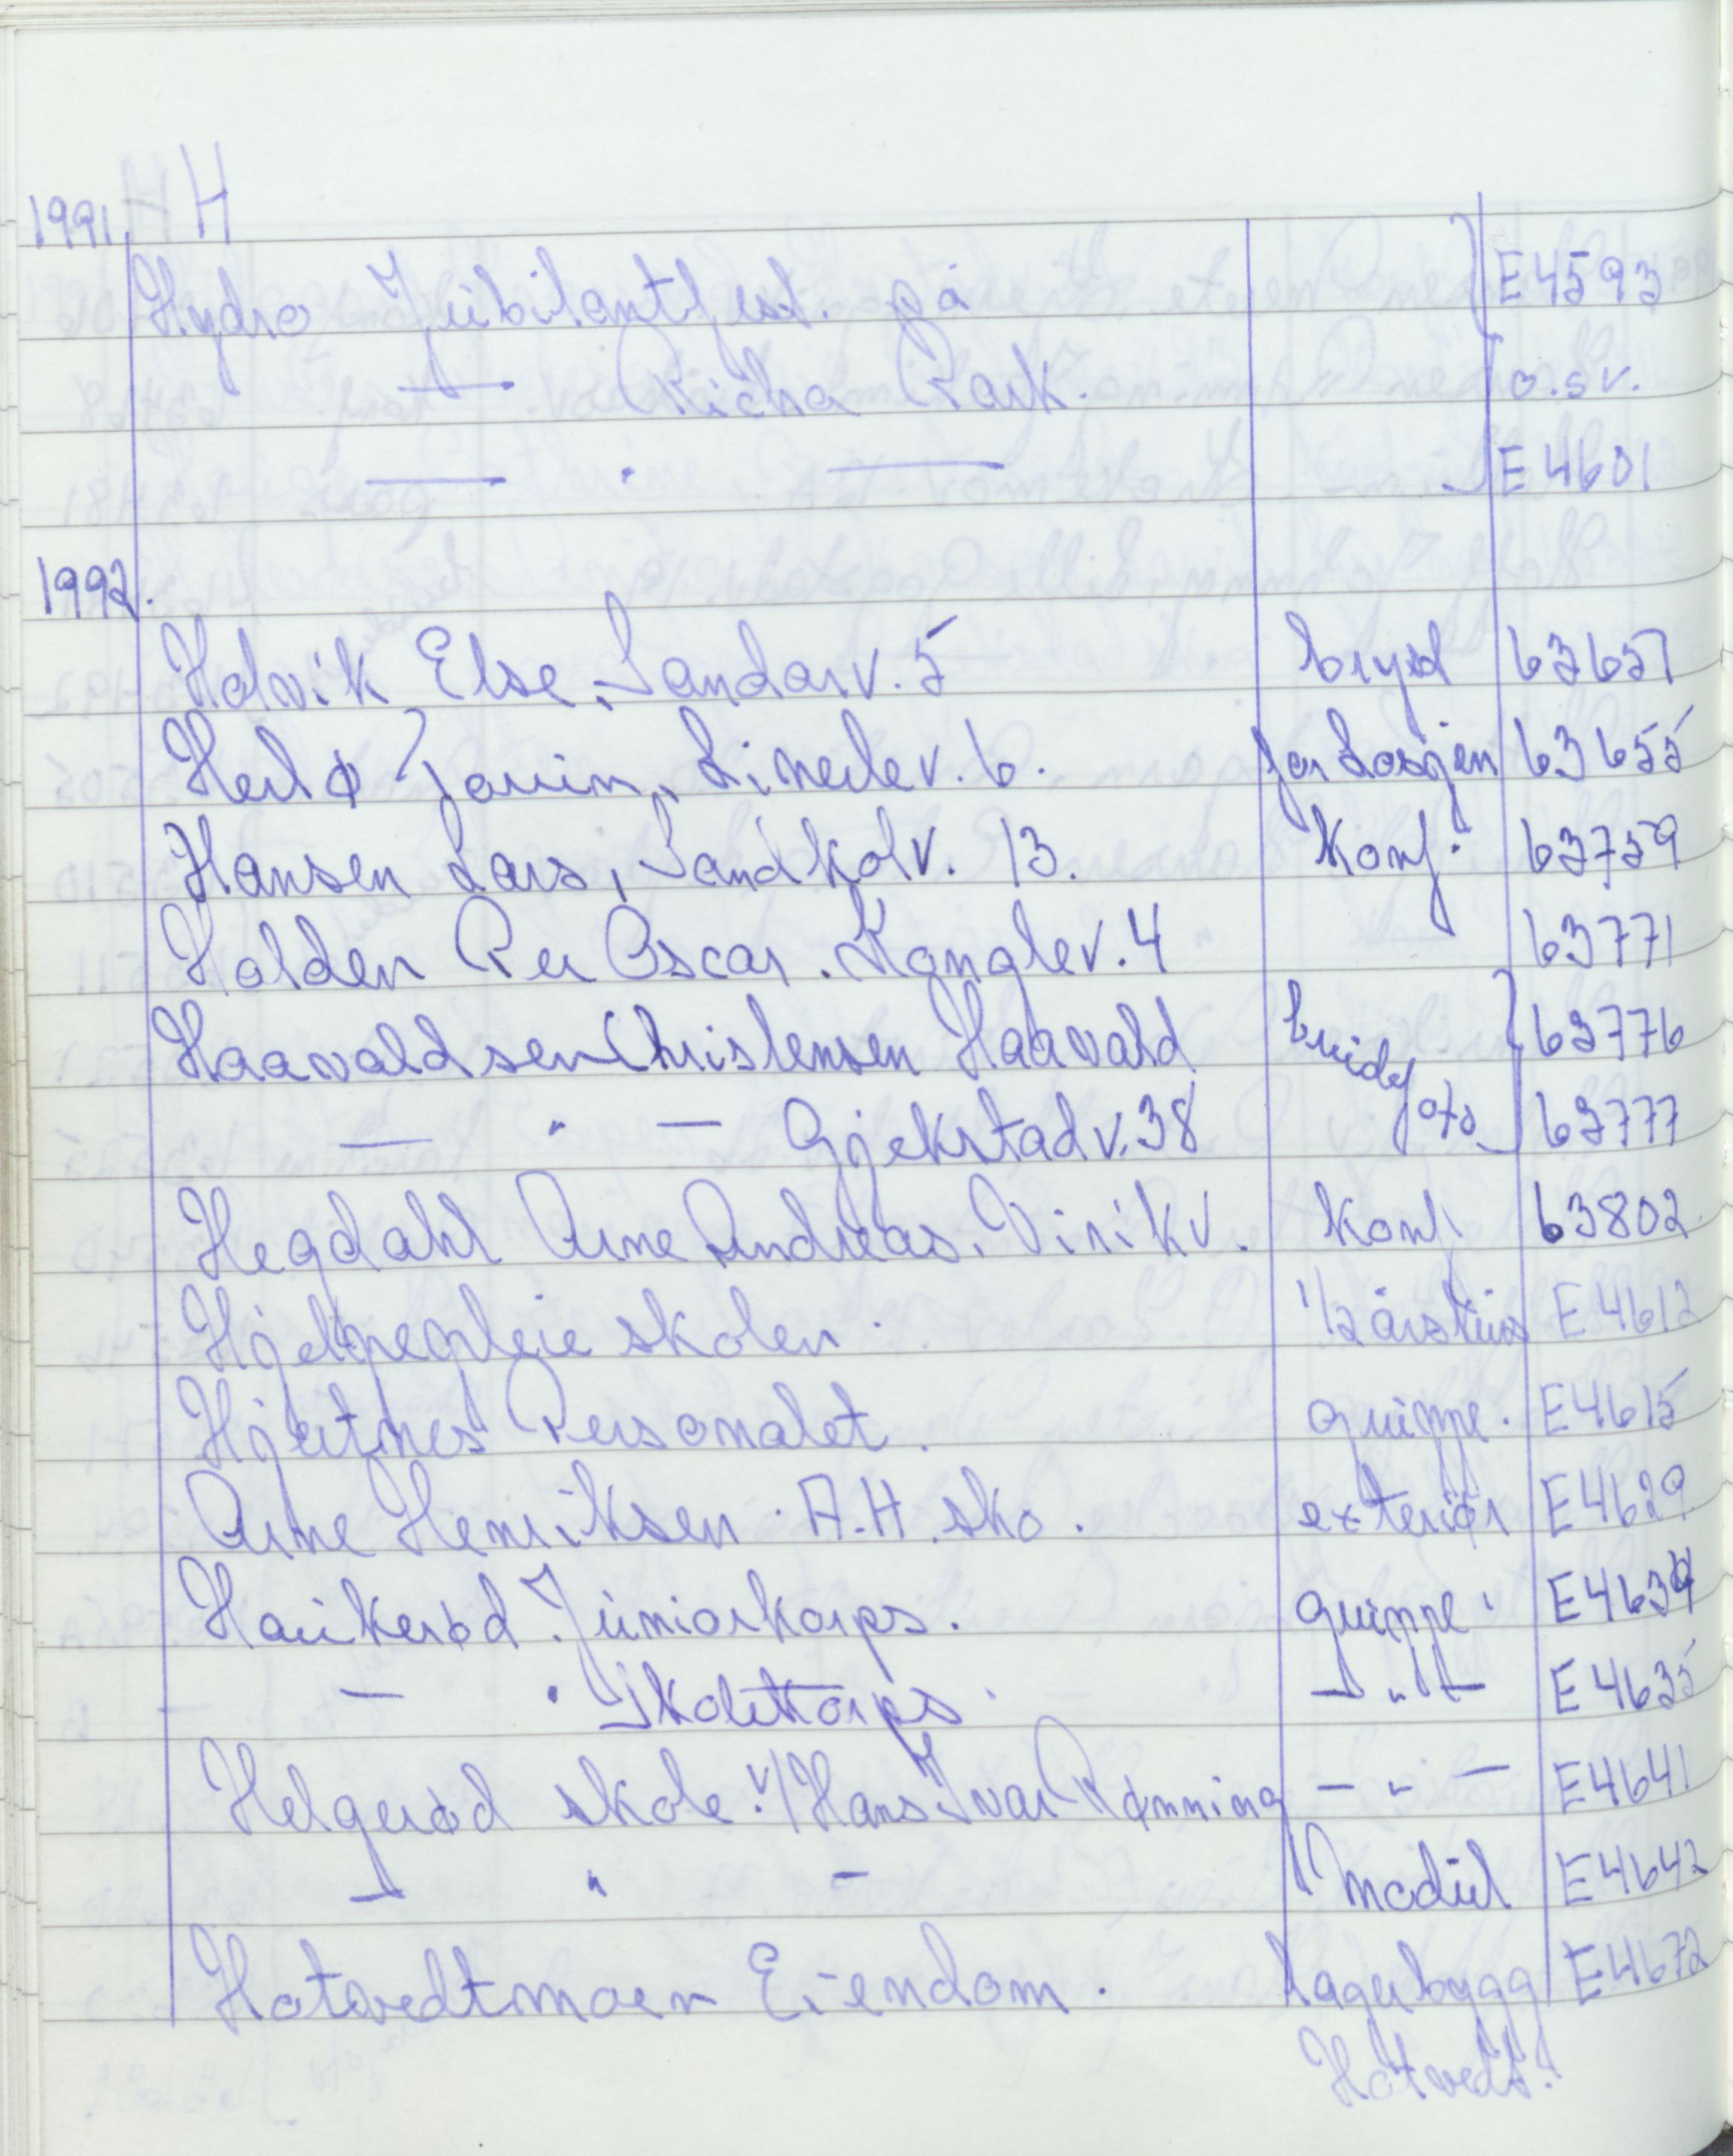 1991. H
Hydro Jubilantfest. på E4593
— Richa Park. o.sv.
— . — E4601
1992.
Holvik Else, Sandarv. 5 bryst 63657
Herlø Linerlev. 6. 63655
Hansen Lars, Sandkolv. 13. Konf. 63759
Holden Per Oscar. Konglev. 4 63771
Haavaldsen Christensen Haavald brude 63776
— " — Gjekstadv. 38 foto 63777
Hegdahl Arne Andreas. Virikv. Konf. 63802
Hjelpepleieskolen. 1/2 årskurs E4612
Hjertnes Personalet. gruppe. E4615
Arne Henriksen. A.H. sko. exteriør E4629
Haukerød Juniorkorps. gruppe. E4634
— " Skolekorps. — " — E4635
Helgerød skole v/Hans Ivar Rønning — " — E4641
— " — Modul E4642
Hotvedtmoen Eiendom. Lagerbygg E4672
Hotvedt.